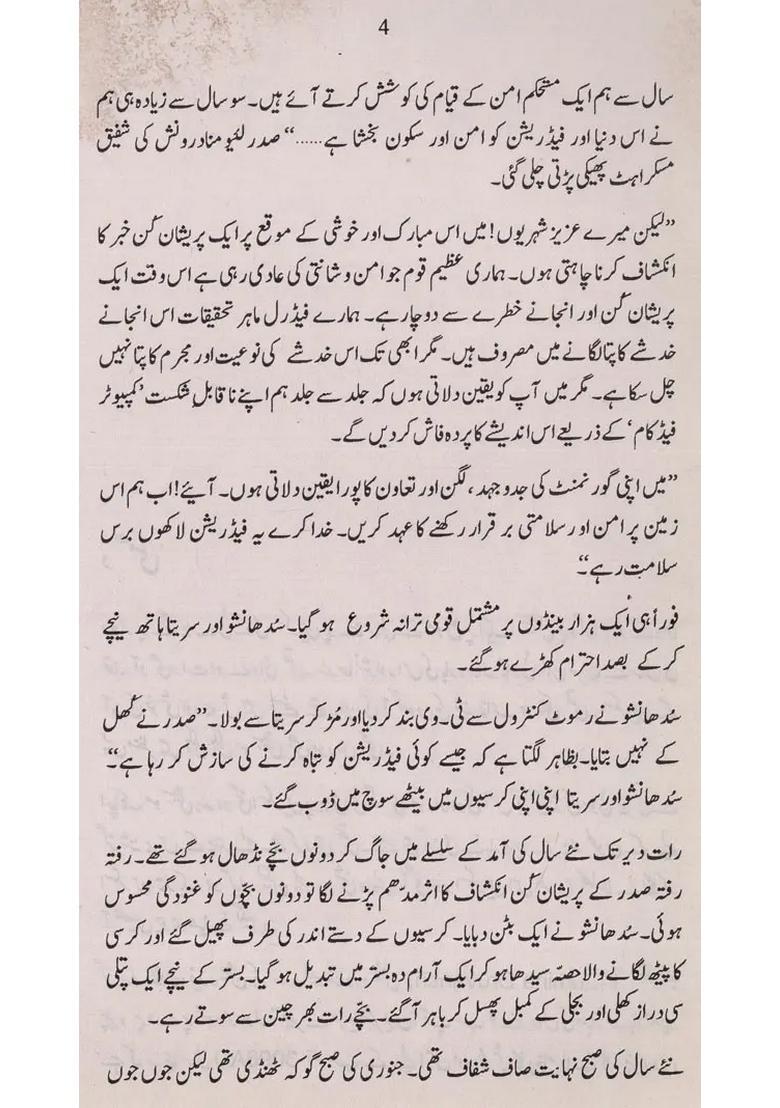 4
سال سے ہم ایک مستحکم امن کے قیام کی کوشش کرتے آئے ہیں۔ سو سال سے زیادہ ہی ہم
نے اس دنیا اور فیڈریشن کو امن اور سکون بخشا ہے......“ صدر لئیو منادرونش کی شفیق
مسکراہٹ پھیکی پڑتی چلی گئی۔
”لیکن میرے عزیز شہریوں! میں اس مبارک اور خوشی کے موقع پر ایک پریشان کُن خبر کا
انکشاف کرنا چاہتی ہوں۔ ہماری عظیم قوم جو امن و شانتی کی عادی رہی ہے اس وقت ایک
پریشان کُن اور انجانے خطرے سے دوچار ہے۔ ہمارے فیڈرل ماہر تحقیقات اس انجانے
خدشے کا پتا لگانے میں مصروف ہیں۔ مگر ابھی تک اس خدشے کی نوعیت اور مجرم کا پتا نہیں
چل سکا ہے۔ مگر میں آپ کو یقین دلاتی ہوں کہ جلد سے جلد ہم اپنے ناقابلِ شکست ’کمپیوٹر
فیڈکام‘ کے ذریعے اس اندیشے کا پردہ فاش کر دیں گے۔
”میں اپنی گورنمنٹ کی جدوجہد، لگن اور تعاون کا پورا یقین دلاتی ہوں۔ آیئے! اب ہم اس
زمین پر امن اور سلامتی برقرار رکھنے کا عہد کریں۔ خدا کرے یہ فیڈریشن لاکھوں برس
سلامت رہے“
فوراً ہی ایک ہزار بینڈوں پر مشتمل قومی ترانہ شروع ہو گیا۔ سُدھانشو اور سریتا ہاتھ نیچے
کر کے بصد احترام کھڑے ہو گئے۔
سُدھانشو نے رموٹ کنٹرول سے ٹی۔وی بند کر دیا اور مُڑ کر سریتا سے بولا۔ ”صدر نے کُھل
کے نہیں بتایا۔ بظاہر لگتا ہے کہ جیسے کوئی فیڈریشن کو تباہ کرنے کی سازش کر رہا ہے“
سُدھانشو اور سریتا اپنی اپنی کرسیوں میں بیٹھے سوچ میں ڈوب گئے۔
رات دیر تک نئے سال کی آمد کے سلسلے میں جاگ کر دونوں بچّے نڈھال ہو گئے تھے۔ رفتہ
رفتہ صدر کے پریشان کُن انکشاف کا اثر مدّھم پڑنے لگا تو دونوں بچّوں کو غنودگی محسوس
ہوئی۔ سُدھانشو نے ایک بٹن دبایا۔ کرسیوں کے دستے اندر کی طرف پھیل گئے اور کرسی
کا پیٹھ لگانے والا حصّہ سیدھا ہو کر ایک آرام دہ بستر میں تبدیل ہو گیا۔ بستر کے نیچے ایک پتلی
سی دراز کھلی اور بجلی کے کمبل پھسل کر باہر آ گئے۔ بچّے رات بھر چین سے سوتے رہے۔
نئے سال کی صبح نہایت صاف شفاف تھی۔ جنوری کی صبح گو کہ ٹھنڈی تھی لیکن جوں جوں